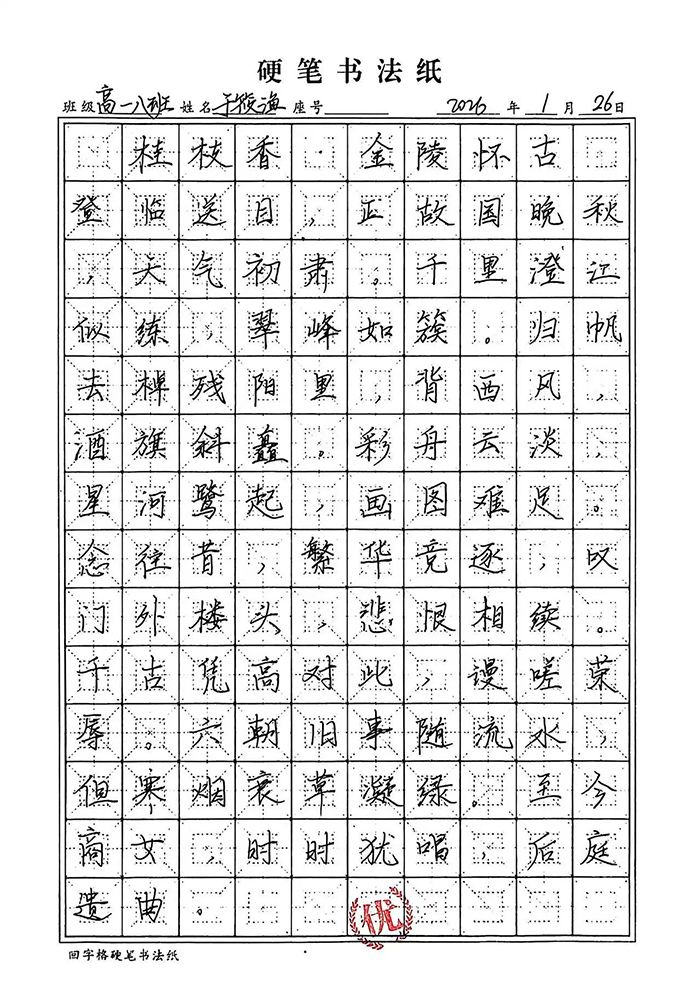 硬笔书法纸
班级 高一八班 姓名 于 座号 2025 年 1 月 26 日
桂枝香·金陵怀古
登临送目，正故国晚秋
，天气初肃。千里澄江
似练，翠峰如簇。归帆
去棹残阳里，背西风，
酒旗斜矗。彩舟云淡，
星河鹭起，画图难足。
念往昔，繁华竞逐，叹
门外楼头，悲恨相续。
千古凭高对此，谩嗟荣
辱。六朝旧事随流水，
但寒烟衰草凝绿。至今
商女，时时犹唱，后庭
遗曲。
优
回字格硬笔书法纸